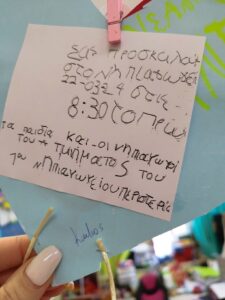 Σας Προσκαλού
στο Νηπιαγωγεί
22-03-24 στις
8:30 το Πρωί
τα παιδια και οι νηπαγωγοι
του * τμηματος του
1ου Νηπιαγωγείου Περιστερίο